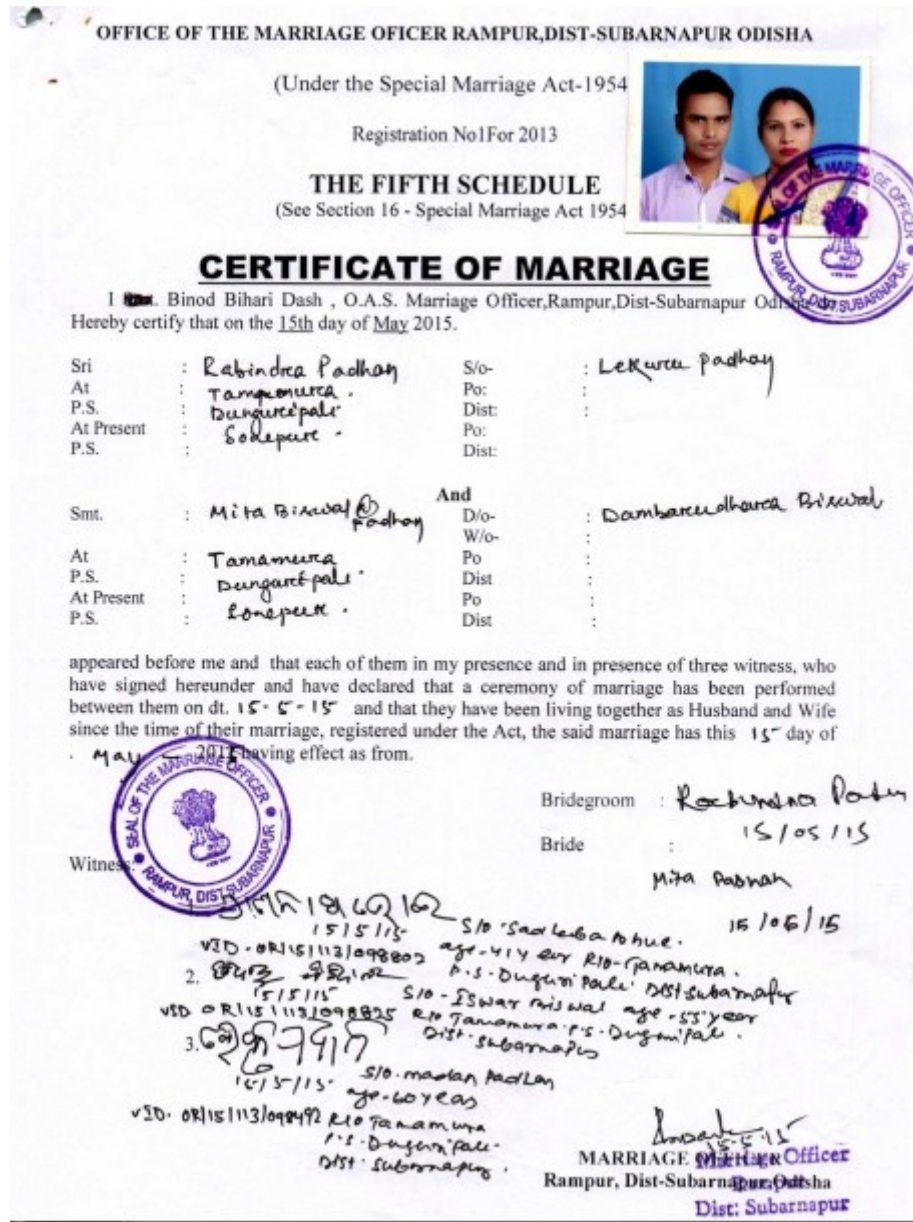 OFFICE OF THE MARRIAGE OFICER RAMPUR,DIST-SUBARNAPUR ODISHA
(Under the Special Marriage Act-1954
Registration No1For 2013
THE FIFTH SCHEDULE
(See Section 16 - Special Marriage Act 1954
SEAL OF THE MARRIAGE OFFICER
RAMPUR, DIST.SUBARNAPUR
CERTIFICATE OF MARRIAGE
I Binod Bihari Dash , O.A.S. Marriage Officer,Rampur,Dist-Subarnapur Odisha do
Hereby certify that on the 15th day of May 2015.
Sri : Rabindra Padhan S/o- : Lekuru padhan
At : Po: :
P.S. : Dunguripali Dist: :
At Present : Sonepure Po:
P.S. : Dist:
And
Smt. : Mita Biswal @ Padhan D/o- : Dambarudhara Biswal
W/o- :
At : Tamamura Po :
P.S. : Dunguripali Dist :
At Present : Sonepur Po :
P.S. : Dist :
appeared before me and that each of them in my presence and in presence of three witness, who
have signed hereunder and have declared that a ceremony of marriage has been performed
between them on dt. 15-5-15 and that they have been living together as Husband and Wife
since the time of their marriage, registered under the Act, the said marriage has this 15 day of
May 2015 having effect as from.
SEAL OF THE MARRIAGE OFFICER
RAMPUR, DIST.SUBARNAPUR
Bridegroom :
15/05/15
Bride :
Mita Padhan
15/05/15
Witness:
15/5/15 S/o
VID-OR/15/113/098802 age-41 year R/o-Tamamura.
P.S-Dunguripali Dist Subarnapur
2.
15/5/15 S/o-Iswar Biswal age-55 year
VID OR/15/113/098825 R/o Tamamura P.S-Dunguripali.
Dist-Subarnapur
3.
15/5/15 S/o-madan Padhan
age-60 years
VID-OR/15/113/098492 R/o Tamamura
P.S-Dunguripali
Dist-Subarnapur.
15-5-15
MARRIAGE OFFICER
Marriage Officer
Rampur, Dist-Subarnapur,Odisha
Rampur
Dist: Subarnapur